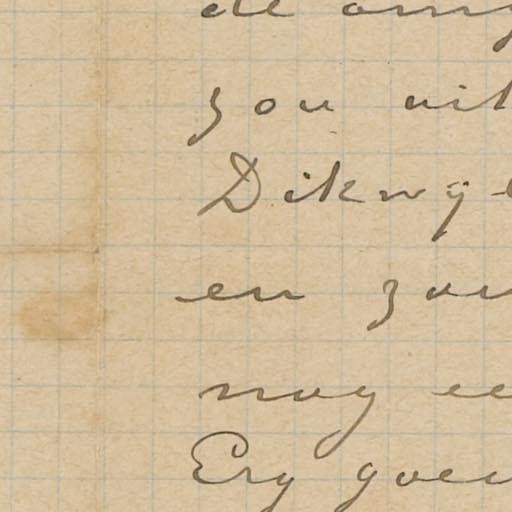 de om
zou uit
Dikwyl
en zou
nog ee
Erg goe